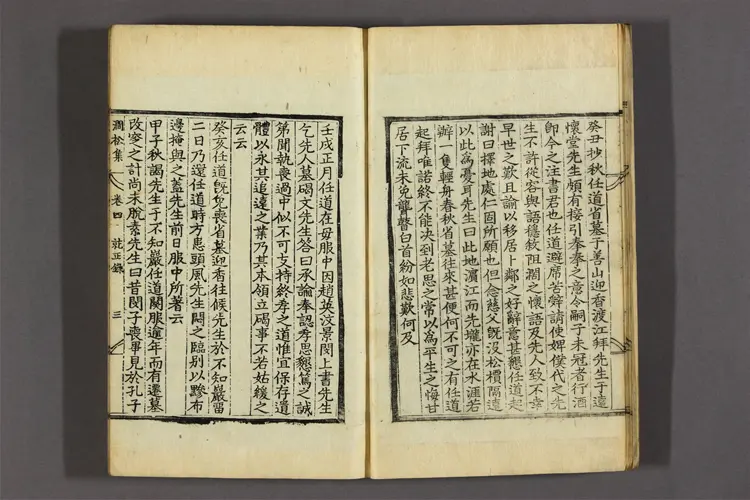 癸丑抄秋任道省墓于善山迎香渡江拜先生于遠
懷堂先生頗有接引拳拳之意令嗣子未冠者行酒
卽今之注書君也任道避席苦辭請使婢僕代之先
生不許從容與語穩敘阻濶之懷語及先人致不幸
早世之歎且諭以移居卜鄰之好辭意甚懇任道起
謝曰擇地處仁固所願也但念慈父旣沒松檟隔遠
以此爲憂耳先生曰此地濱江而先壠亦在水涯若
辦一隻輕舟春秋省墓往來甚便何不可之有任道
起拜唯諾終不能决到老思之常以爲平生之悔甘
居下流未免聾瞽白首紛如悲歎何及
壬戌正月任道在毋服中因趙英汶景閔上書先生
乞先人墓碣文先生答曰承諭奉認孝思懇篤之誠
第聞執喪過中似不可支持終孝之道惟宜保存遺
體以永其追遠之業乃其本領立碣事不若姑緩之
云云
癸亥任道旣免喪省墓迎香往候先生於不知巖留
二日乃還任道時方患頭風先生閔之臨别以黲布
邊掩與之蓋先生前日服中所著云
甲子秋謁先生于不知巖任道闋服逾年而有遷墓
改窆之計尚未脫素先生曰昔閔子喪畢見於孔子
澗松集 卷四 就正錄 三